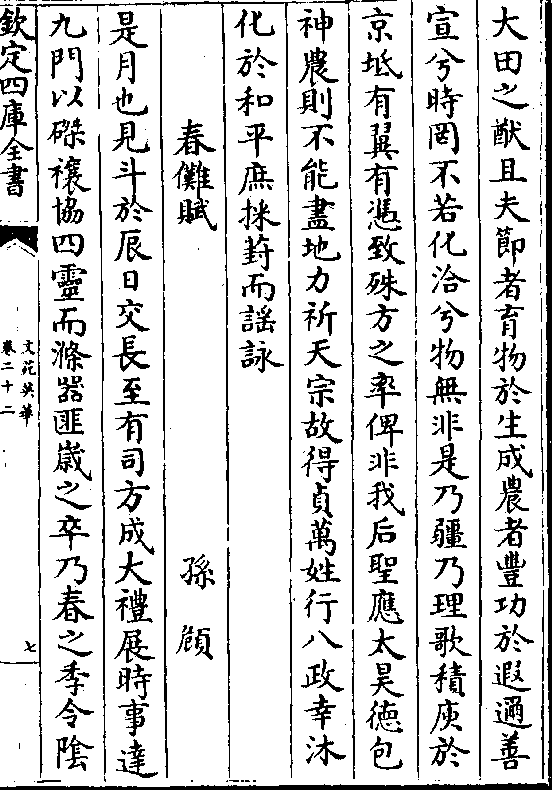 大田之猷且夫節者育物於生成農者豐功於遐邇善
宣兮時罔不若化洽兮物無非是乃疆乃理歌積庾於
京坻有翼有憑致殊方之率俾非我后聖應太昊德包
神農則不能盡地力祈天宗故得貞萬姓行八政幸沐
化於和平庶採葑而謡詠
春儺賦
孫頠
是月也見斗於辰日交長至有司方成大禮展時事達
九門以磔禳協四靈而滌器匪歲之卒乃春之季令陰
欽定四庫全書
文苑英華
卷二十二
七